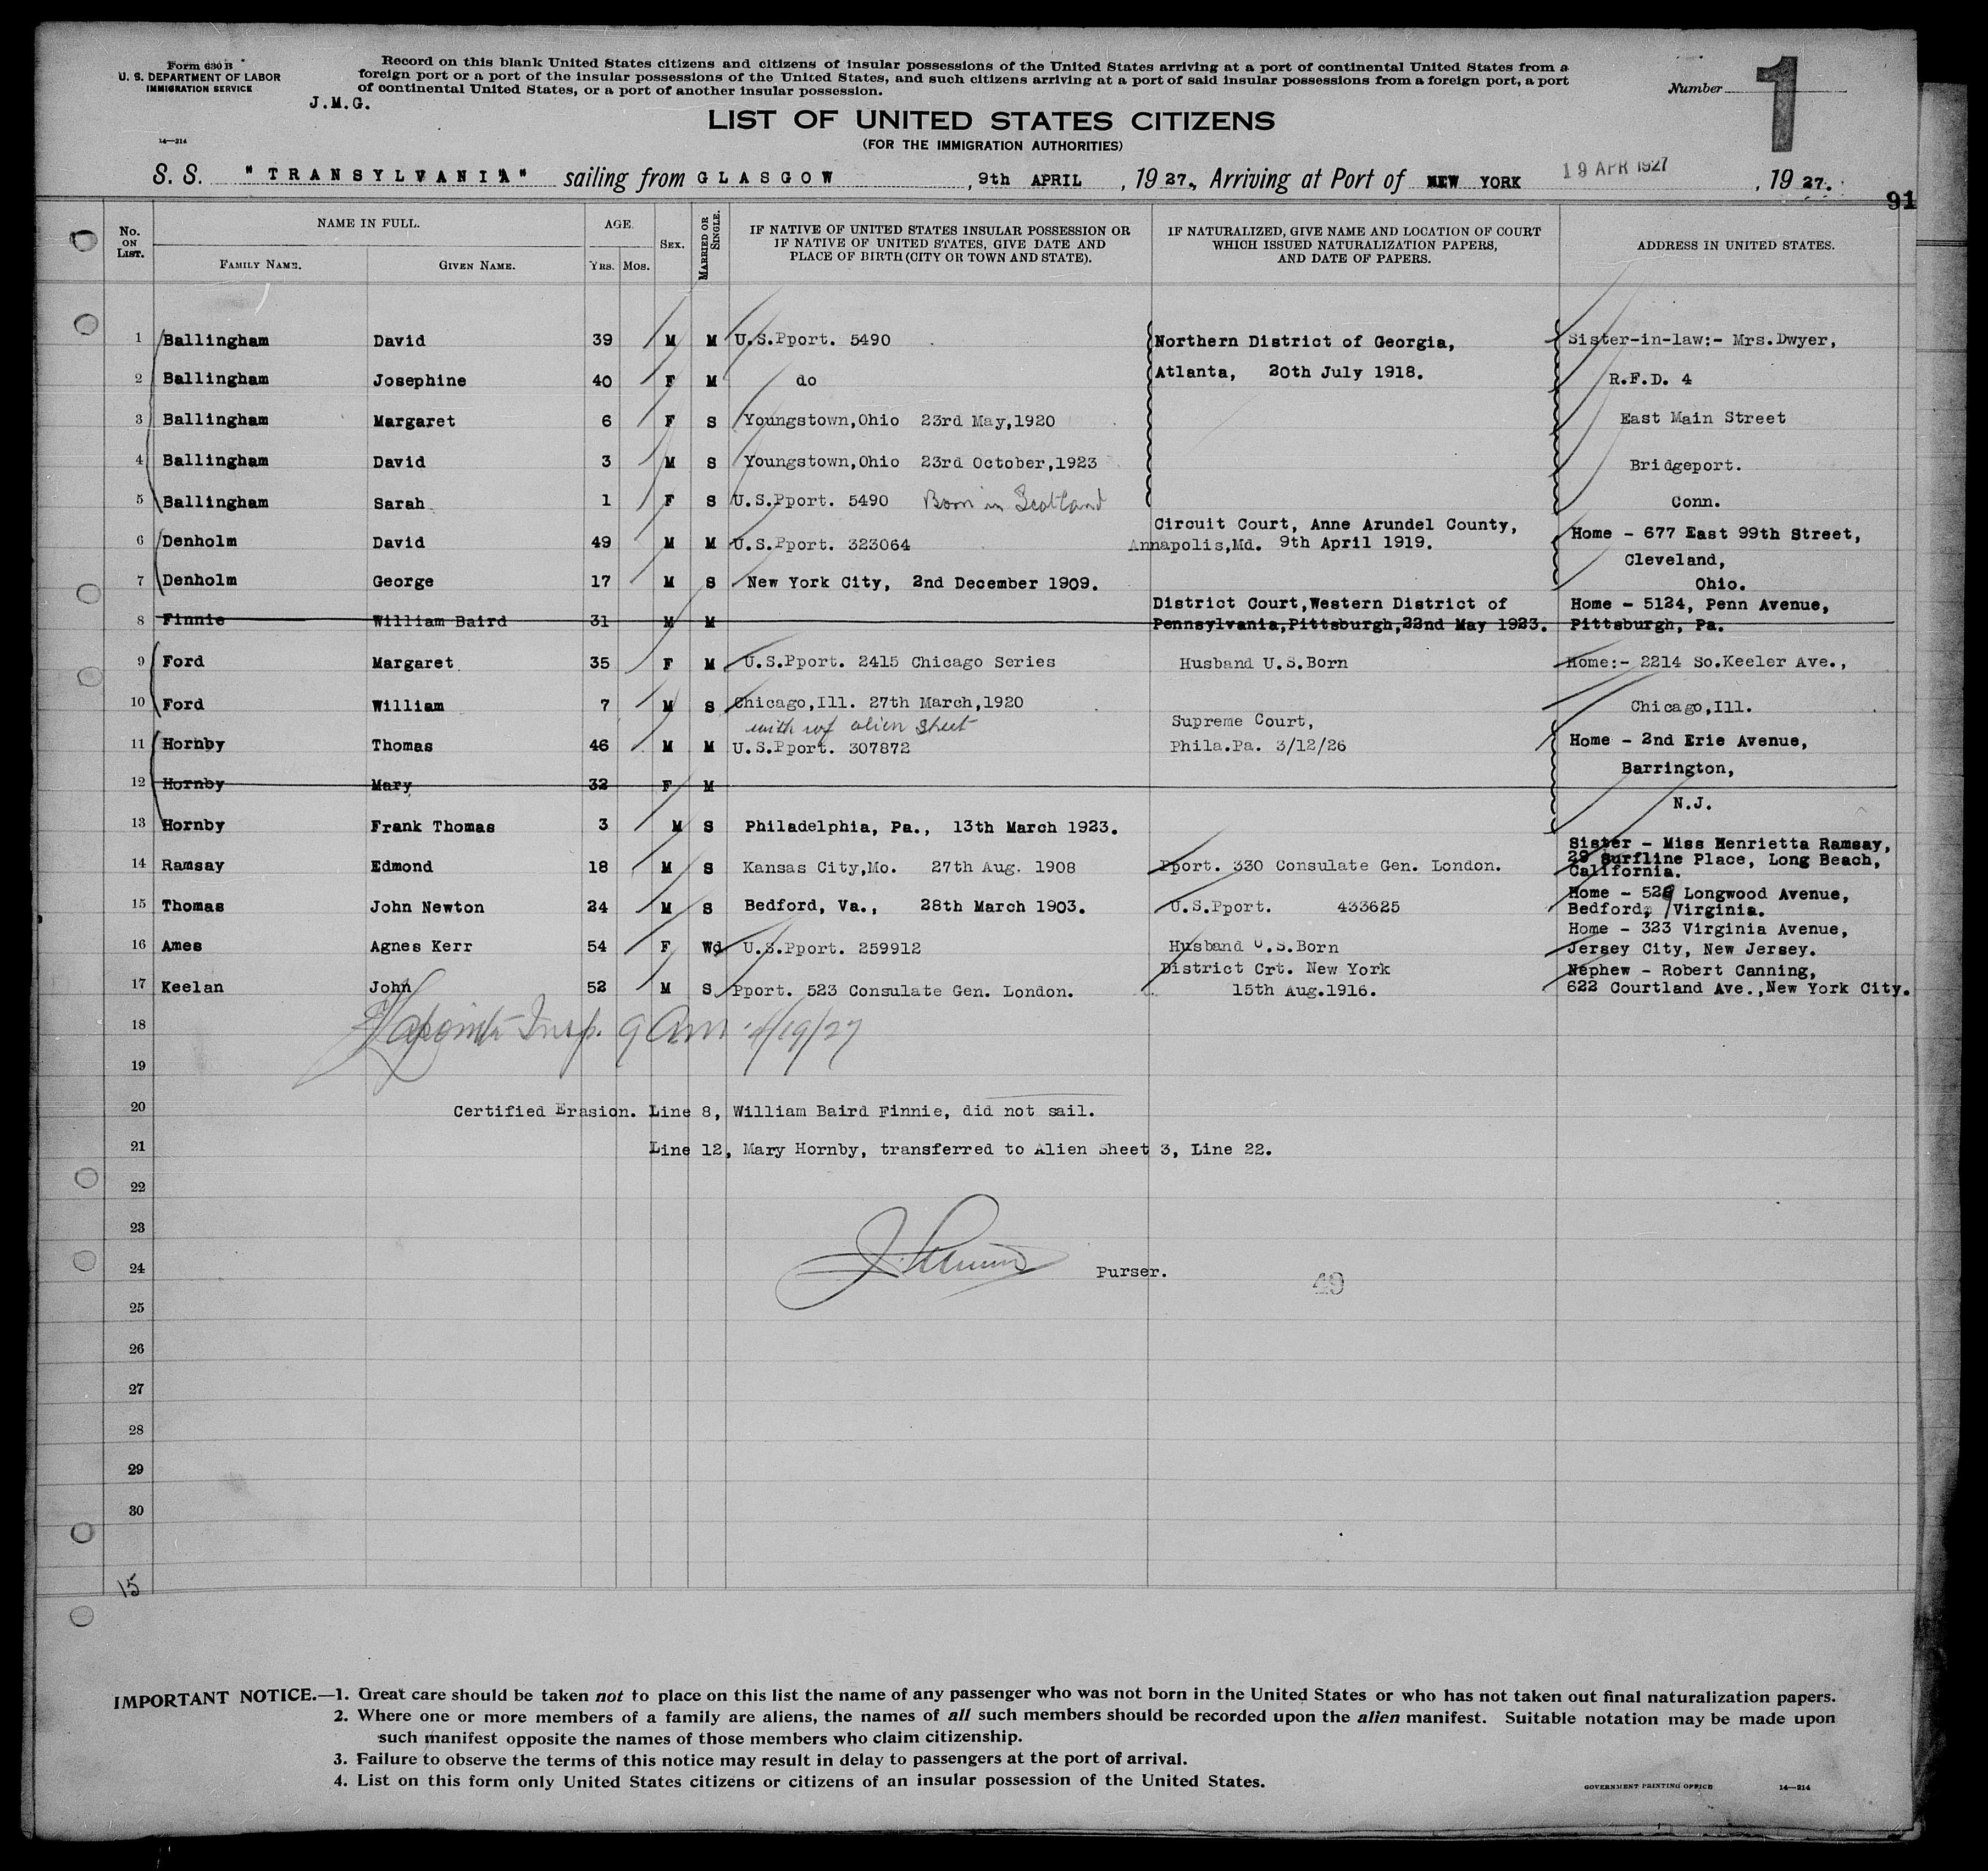 Form 630 B
U. S. DEPARTMENT OF LABOR
IMMIGRATION SERVICE
J.M.G.
14—214
Record on this blank United States citizens and citizens of insular possessions of the United States arriving at a port of continental United States from a
foreign port or a port of the insular possessions of the United States, and such citizens arriving at a port of said insular possessions from a foreign port, a port
of continental United States, or a port of another insular possession.
Number 1
LIST OF UNITED STATES CITIZENS
(FOR THE IMMIGRATION AUTHORITIES)
S. S. "TRANSYLVANIA" sailing from GLASGOW, 9th APRIL, 1927., Arriving at Port of NEW YORK 19 APR 1927, 1927.
91
No. ON LIST. NAME IN FULL. FAMILY NAME. GIVEN NAME. AGE. YRS. MOS. SEX. MARRIED OR SINGLE. IF NATIVE OF UNITED STATES INSULAR POSSESSION OR IF NATIVE OF UNITED STATES, GIVE DATE AND PLACE OF BIRTH (CITY OR TOWN AND STATE). IF NATURALIZED, GIVE NAME AND LOCATION OF COURT WHICH ISSUED NATURALIZATION PAPERS, AND DATE OF PAPERS. ADDRESS IN UNITED STATES.
1 Ballingham David 39 M M U.S.Pport. 5490 Northern District of Georgia, Sister-in-law:- Mrs.Dwyer,
2 Ballingham Josephine 40 F M do Atlanta, 20th July 1918. R.F.D. 4
3 Ballingham Margaret 6 F S Youngstown,Ohio 23rd May,1920 East Main Street
4 Ballingham David 3 M S Youngstown,Ohio 23rd October,1923 Bridgeport.
5 Ballingham Sarah 1 F S U.S.Pport. 5490 Born in Scotland Conn.
Circuit Court, Anne Arundel County,
6 Denholm David 49 M M U.S.Pport. 323064 Annapolis,Md. 9th April 1919. Home - 677 East 99th Street,
Cleveland,
7 Denholm George 17 M S New York City, 2nd December 1909. Ohio.
District Court,Western District of Home - 5124, Penn Avenue,
8 Finnie William Baird 31 M M Pennsylvania,Pittsburgh,22nd May 1923. Pittsburgh, Pa.
9 Ford Margaret 35 F M U.S.Pport. 2415 Chicago Series Husband U.S.Born Home:- 2214 So.Keeler Ave.,
10 Ford William 7 M S Chicago,Ill. 27th March,1920 Chicago,Ill.
with wf alien Sheet Supreme Court,
11 Hornby Thomas 46 M M U.S.Pport. 307872 Phila.Pa. 3/12/26 Home - 2nd Erie Avenue,
Barrington,
12 Hornby Mary 32 F M
N.J.
13 Hornby Frank Thomas 3 M S Philadelphia, Pa., 13th March 1923.
Sister - Miss Henrietta Ramsay,
14 Ramsay Edmond 18 M S Kansas City,Mo. 27th Aug. 1908 Pport. 330 Consulate Gen. London. 29 Surfline Place, Long Beach,
California.
Home - 52 Longwood Avenue,
15 Thomas John Newton 24 M S Bedford, Va., 28th March 1903. U.S.Pport. 433625 Bedford, Virginia.
Home - 323 Virginia Avenue,
16 Ames Agnes Kerr 54 F Wd U.S.Pport. 259912 Husband U.S.Born Jersey City, New Jersey.
District Crt. New York Nephew - Robert Canning,
17 Keelan John 52 M S Pport. 523 Consulate Gen. London. 15th Aug.1916. 622 Courtland Ave.,New York City.
18 Insp. 9 Am 4/19/27
19
20 Certified Erasion. Line 8, William Baird Finnie, did not sail.
21 Line 12, Mary Hornby, transferred to Alien Sheet 3, Line 22.
22
23
24 Purser. 49
25
26
27
28
29
30
15
IMPORTANT NOTICE.—1. Great care should be taken not to place on this list the name of any passenger who was not born in the United States or who has not taken out final naturalization papers.
2. Where one or more members of a family are aliens, the names of all such members should be recorded upon the alien manifest. Suitable notation may be made upon
such manifest opposite the names of those members who claim citizenship.
3. Failure to observe the terms of this notice may result in delay to passengers at the port of arrival.
4. List on this form only United States citizens or citizens of an insular possession of the United States.
GOVERNMENT PRINTING OFFICE 14—214